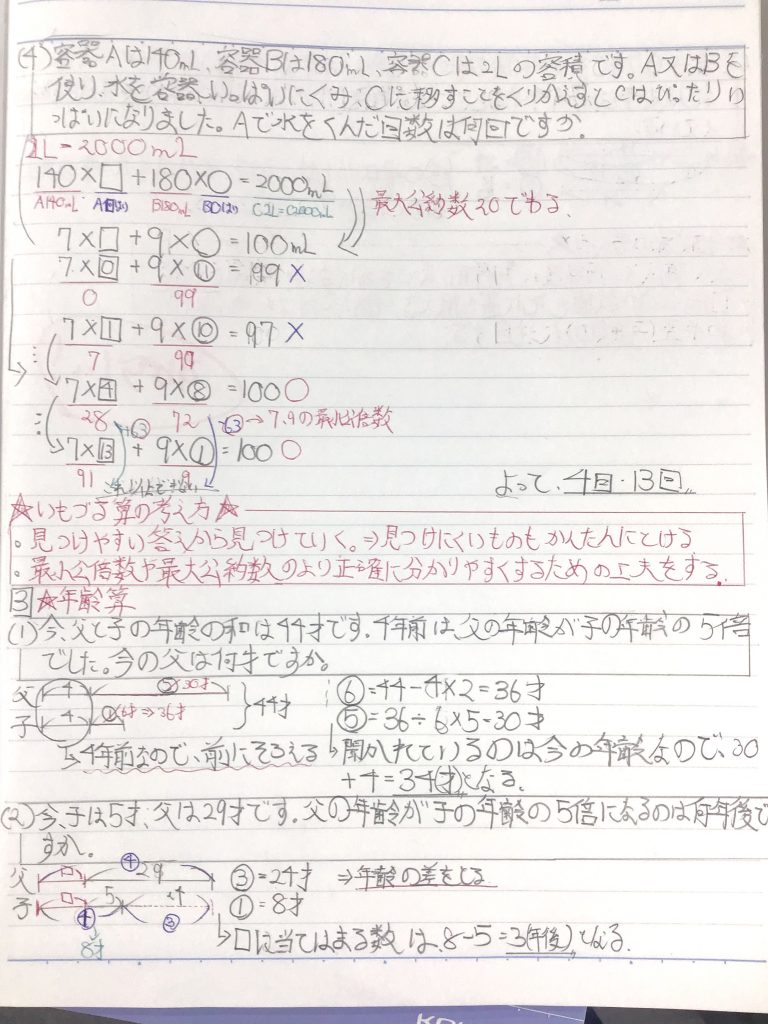 (4)容器Aは140mL、容器Bは180mL、容器Cは2Lの容積です。A又はBを
使り、水を容器いっぱいにくみ、Cに移すことをくりかえすとCはぴったりい
っぱいになりました。Aで水をくんだ回数は何回ですか。
2L=2000mL
140×□+180×○=2000mL
A140mL B180mL C2L=C2000mL
最大公約数20でわる、
7×□+9×○=100mL
7×0+9×⑪=99×
0 99
7×1+9×⑩=97×
7 90
7×4+9×⑧=100○
28 72 +63 -63→7,9の最小公倍数
7×13+9×①=100○
91 9
よって、4回・13回〃
☆いもづる算の考え方☆
。見つけやすい答えから見つけていく。⇒見つけにくいものもかんたんにとける
。最小公倍数や最大公約数のより正確に分かりやすくするための工夫をする。
3 ☆年齢算
(1)今、父と子の年齢の和は44才です。4年前は、父の年齢が子の年齢の5倍
でした。今の父は何才ですか。
父 4 ⑤30才
子 4 ①6才⇒36才 44才
⑥=44-4×2=36才
⑤=36÷6×5=30才
↳4年前なので、前にそろえる
↳聞かれているのは今の年齢なので、30
+4=34(才)となる。
(2)今、子は5才、父は29才です。父の年齢が子の年齢の5倍になるのは何年後で
すか。
父 □ ④ 29
子 □ 5 ④
8才
③=24才 ⇒年齢の差をとる
①=8才
↳□に当てはまる数は、8-5=3(年後)となる。